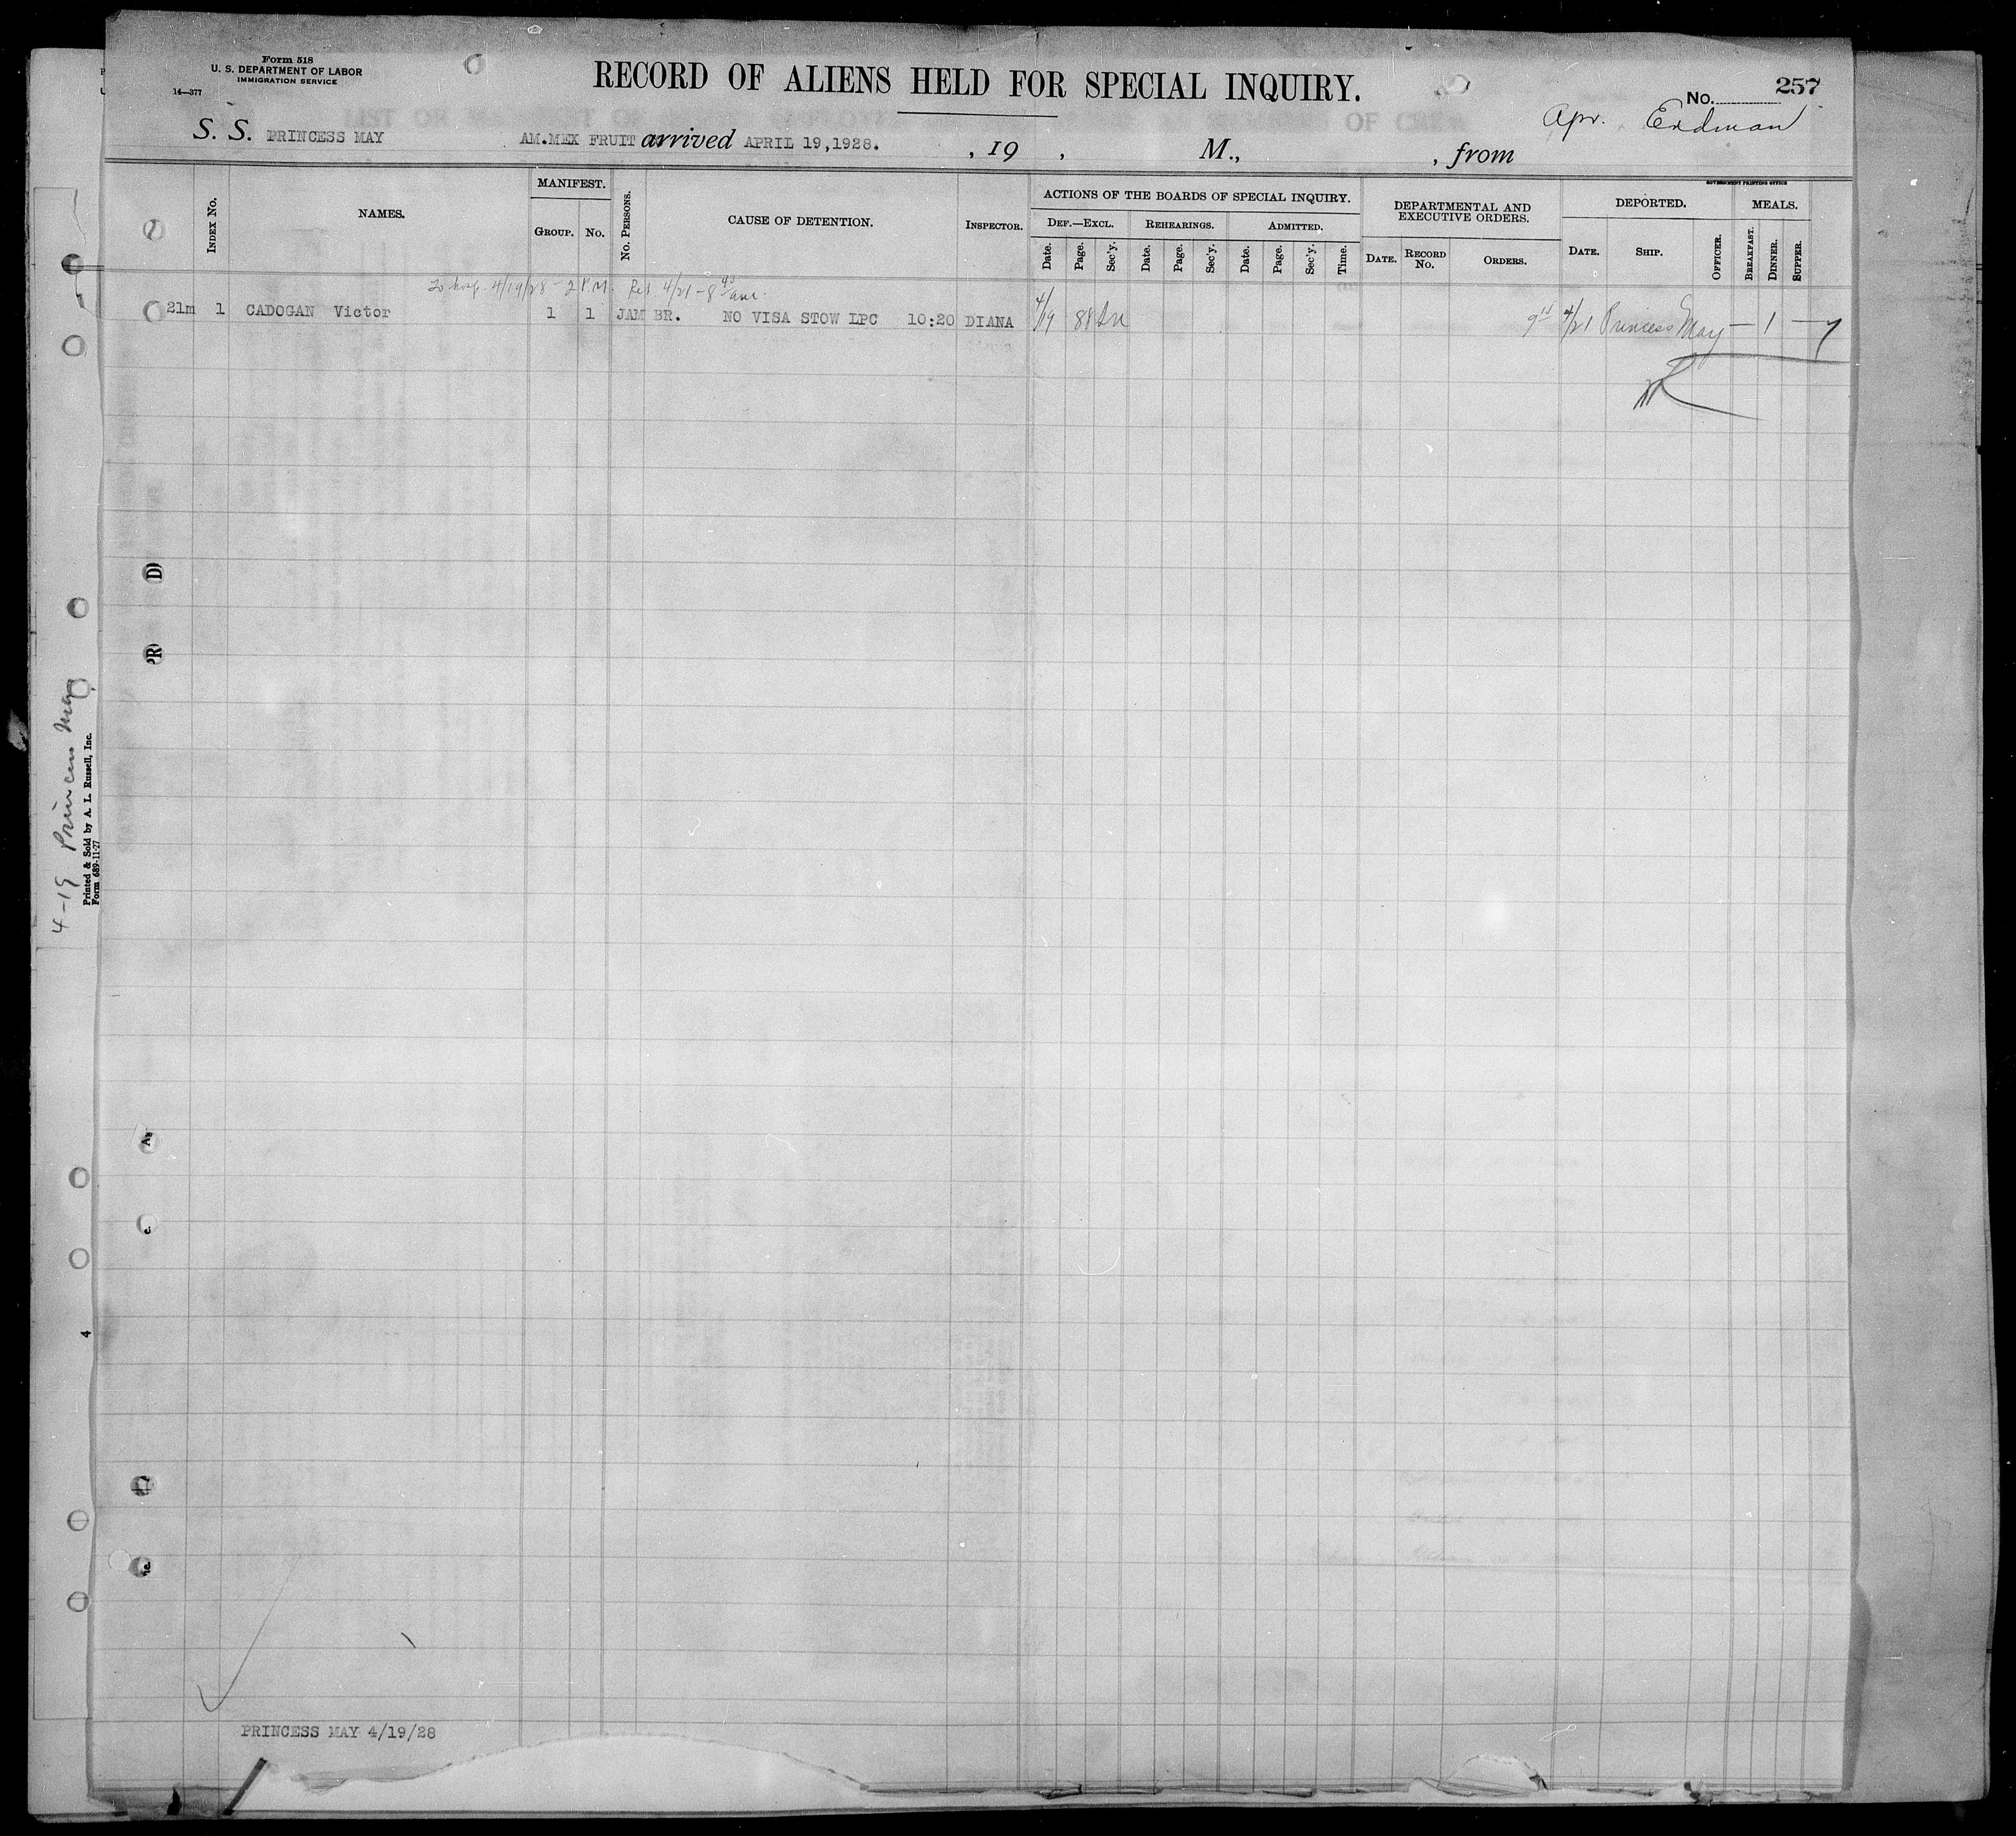 Form 518
U. S. DEPARTMENT OF LABOR
IMMIGRATION SERVICE
14—377
RECORD OF ALIENS HELD FOR SPECIAL INQUIRY.
No. 257
Apr. Erdman
S. S. PRINCESS MAY AM.MEX FRUIT arrived APRIL 19,1928. , 19 , M., , from
GOVERNMENT PRINTING OFFICE
INDEX NO. NAMES. MANIFEST. GROUP. NO. NO. PERSONS. CAUSE OF DETENTION. INSPECTOR. ACTIONS OF THE BOARDS OF SPECIAL INQUIRY. DEPARTMENTAL AND EXECUTIVE ORDERS. DEPORTED. MEALS.
DEF.—EXCL. REHEARINGS. ADMITTED.
Date. Page. Sec'y. Date. Page. Sec'y. Date. Page. Sec'y. Time. DATE. RECORD NO. ORDERS. DATE. SHIP. OFFICER. BREAKFAST. DINNER. SUPPER.
To hosp. 4/19/28 - 2 P.M. Ret 4/21 - 8 40 am.
21m 1 CADOGAN Victor 1 1 JAM BR. NO VISA STOW LPC 10:20 DIANA 4/19 88 4/21 Princess May — 1 —
4-19 Princess May
Printed & Sold by A. L. Russell, Inc.
Form 689-11-27
4
PRINCESS MAY 4/19/28